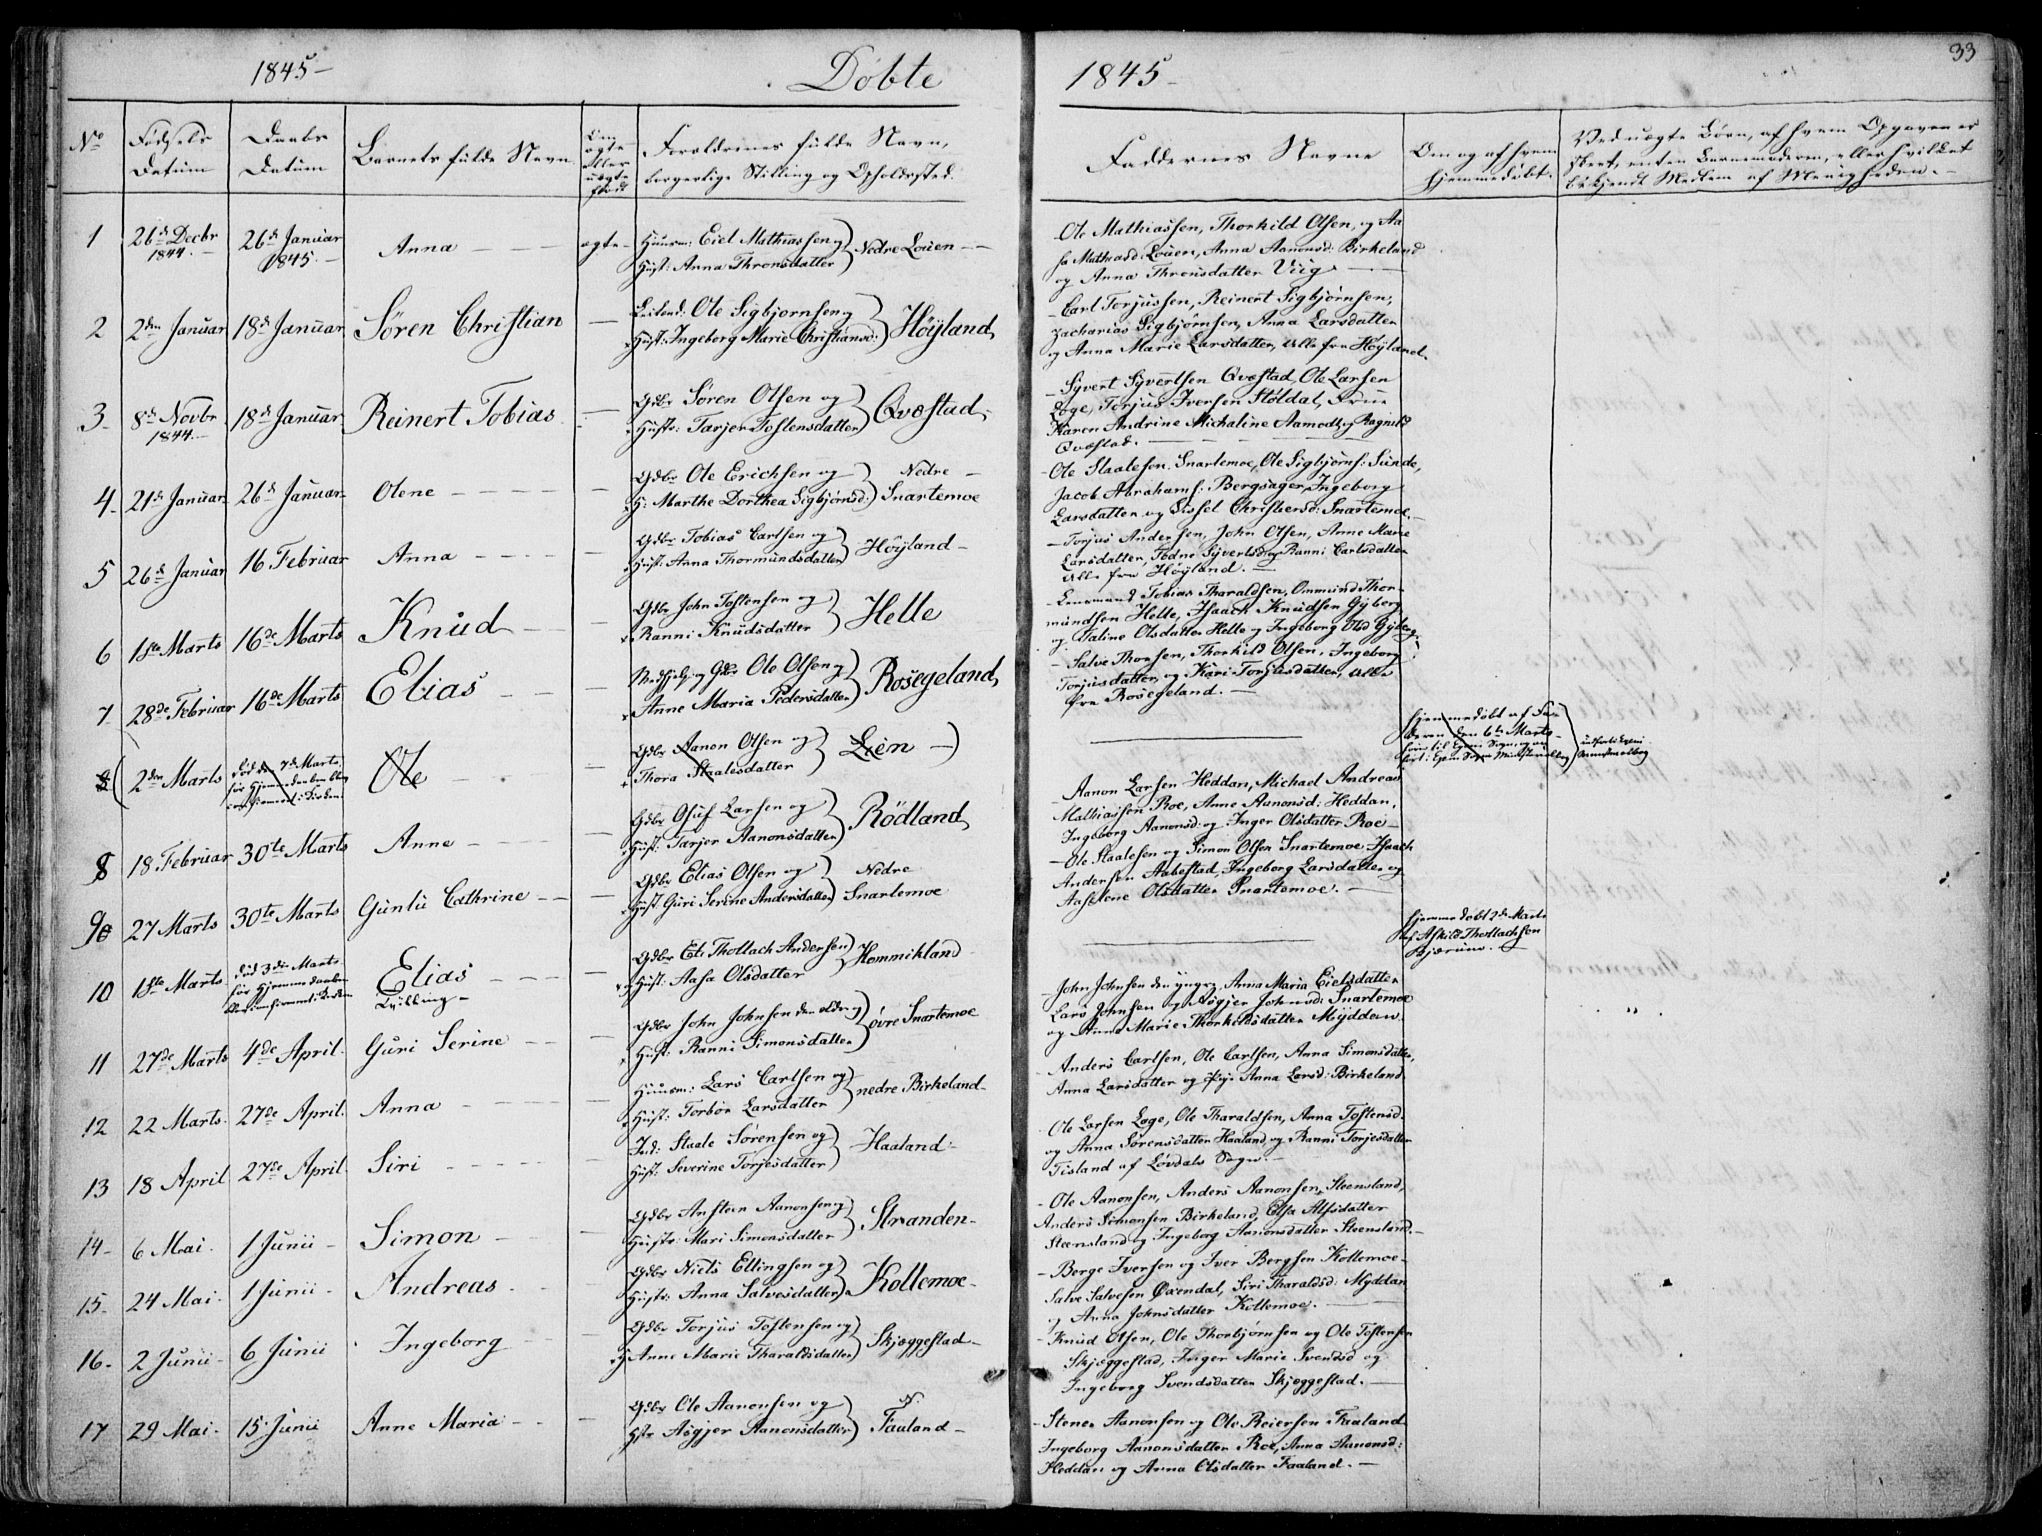 1845 –
Døbte
1845 –
33
No
Fødsels Datum
Daabs Datum
Barnets fulde Navn
Om ægte eller uægte født
Forældrenes fulde Navn, borgerlige Stilling og Opholdssted.
Faddernes Navne
Om og af hvem hjemmedøbt.
Ved uægte Børn, af hvem Opgaven er skeet, enten Barnemoderen, eller hvilket bekjendt Medlem af Menigheden. –
1 26de Decbr 1844. – 26de Januar 1845. – Anna – ægte –
Huusm: Eiel Mathiassen og
Hust: Anna Thronsdatter) Nedre Loien –
Ole Mathiassen, Thorkild Olsen, og Aa
sa Mathiasd: Loien, Anna Aanonsd: Birkeland
og Anna Thronsdatter Viig –
2 2den Januar 18de Januar Sören Christian –
Ole Sigbjørnsen og
Hust: Ingeborg Marie Christiansd:) Höyland,
Carl Torjussen, Reinert Sigbjørnsen,
Zacharias Sigbjørnsen, Anna Larsdatter
og Anna Marie Larsdatter, alle fra Höyland.
3. 8de Novbr 1844. – 18de Januar Reinert Tobias –
Gdbr Sören Olsen og
Hustr: Tarjer Tostensdatter) Qvæstad,
– Syvert Syvertsen Qvæstad, Ole Larsen
Loge, Torjus Iversen Støldal,
Karen Andrine Michaline Aamodt og Ragnild
Qvæstad. –
4. 21de Januar 26de Januar Olene –
Gdbr Ole Erichsen og
H: Marthe Dorthea Sigbjørnsd:) Nedre Snartemoe
– Ole Staalesen Snartemoe, Ole Sigbjørns: Sunde,
Jacob Abrahams: Bergsager, Ingeborg
Larsdatter og Sissel Christensd: Snartemoe. –
5 26de Januar 16 Februar Anna –
Gdbr Tobias Carlsen og
Hust: Anna Thormundsdatter) Höyland –
– Torjus Andersen, John Olsen, Anne Marie
Larsdatter, Todne Syvertsd og Ranni Carlsdatter
alle fra Höyland. –
6 1ste Marts 16de Marts Knud –
Gdbr John Tostensen og
Ranni Knudsdatter) Helle
– Lensmand Tobias Tharaldsen, Ommund Thor-
mundsen Helle, Isaach Knudsen Gyberg
og Taline Olsdatter Helle og Ingeborg Olsd Gyberg
7 28de Februar 16de Marts Elias –
Gdbr Ole Olsen og
Anne Maria Pedersdatter) Rosegeland,
– Salve Thorsen, Thorkild Olsen, Ingeborg
Torjusdatter, og Kari Torjusdatter, alle
fra Rosegeland. –
8 2den Marts død den 7de Marts, før Hjemmedaaben blev confirmeret i Kirken Ole –
Gdbr Aanon Olsen og
Thora Staalesdatter) Lien –
Hjemmedøbt af Fa-
deren den 6te Marts
8 18 Februar 30te Marts Anne –
Gdbr Asuf Larsen og
Hust: Tarjer Aanonsdatter) Rödland,
– Aanon Larsen Heddan, Michael Andreas
Mathiassen Roe, Anne Aanonsd: Heddan,
Ingeborg Aanonsd: og Inger Olsdatter Roe –
9 27 Marts 30te Marts Gunlu Cathrine –
Gdbr Elias Olsen og
Hust Guri Serine Andersdatter) Nedre Snartemoe
– Ole Staalesen og Simon Olsen Snartemoe, Isaach
Andersen Aabestad, Ingeborg Larsdatter og
Aaselene Olsdatter Snartemoe. –
10 1ste Marts død 3die Marts før Hjemmedaaben blev confirmeret i Kirken Elias Tvilling –
Gdbr Thollach Andersen
Hust: Aasa Olsdatter) Hommikland
Hjemmedøbt 2de Marts
af Askild Thollachsen
Bjærum. –
11 27de Marts 4de April. Guri Serine –
Gdbr John Johnsen den eldre og
Hust: Ranni Simonsdatter) øvre Snartemoe
John Johnsen den yngre, Anna Maria Eielsdatter
Lars Johnsen og Asgjer Johnsd: Snartemoe
og Anne Marie Thorkildsdatter Myddan
12 22 Marts. 27de April. Anna –
Huusm: Lars Carlsen og
Hust: Torbor Larsdatter) nedre Birkeland –
– Anders Carlsen, Ole Carlsen, Anna Simonsdatter,
Anna Larsdatter og Pige Anna Larsd: Birkeland.
13 18 April 27de April Siri –
Ind: Staale Sørensen og
Hust: Severine Torjesdatter) Haaland –
Ole Larsen Loge, Ole Tharaldsen, Anna Tostensd.
og Anna Sørensdatter Haaland, og Ranni Torjesdatter
Tisland af Løvdals Sogn. –
14 – 6 Mai. 1 Junii – Simon –
Gdbr Anstein Aanonsen og
Hustr: Mari Simonsdatter) Stranden –
– Ole Aanonsen, Anders Aanonsen, Steensland,
Anders Simonsen Birkeland, Elsa Alfsdatter
Steensland og Ingeborg Aanonsdatter Steensland. –
15 – 24 Mai. 1 Junii – Andreas –
Gdbr Niels Ellingsen og
Hustr: Anna Salvesdatter) Kollemoe –
– Berge Iversen og Iver Bergsen Kollemoe –
Salve Salvesen Øxendal, Siri Tharaldsd: Myddan
og Anna Johnsdatter Kollemoe. –
16 – 2 Junii – 6 Junii Ingeborg –
Gdbr Torjus Tostensen og
H Anne Marie Tharaldsdatter) Skjæggestad –
– Knud Olsen, Ole Thorbjørnsen og Ole Tostensen
Skjæggestad, Inger Marie Svendsd og
Ingeborg Svendsdatter Skjæggestad. –
17 29 Mai. 15 Junii Anne Maria –
Gdbr Ole Aanonsen og
Hstr Asgjer Aanonsdatter) Faaland –
– Stener Aanonsen og Ole Reiersen Faaland
Ingeborg Aanonsdatter Roe, Anna Aanonsd:
Heddan og Anna Olsdatter Faaland. –